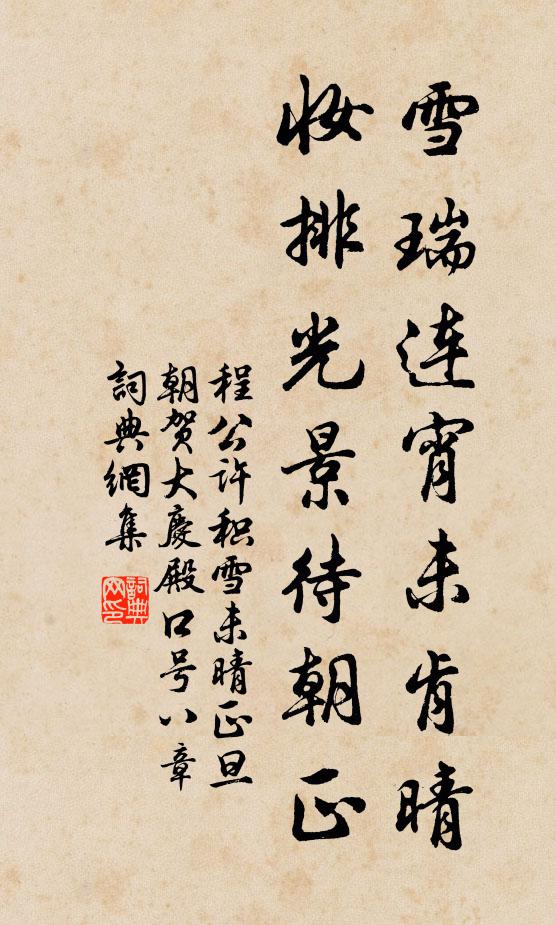 雪瑞连宵未肯晴
妆排光景待朝正
程公许积雪未晴正旦
朝贺大慶殿口号八章
詞典網集
詞典
网印